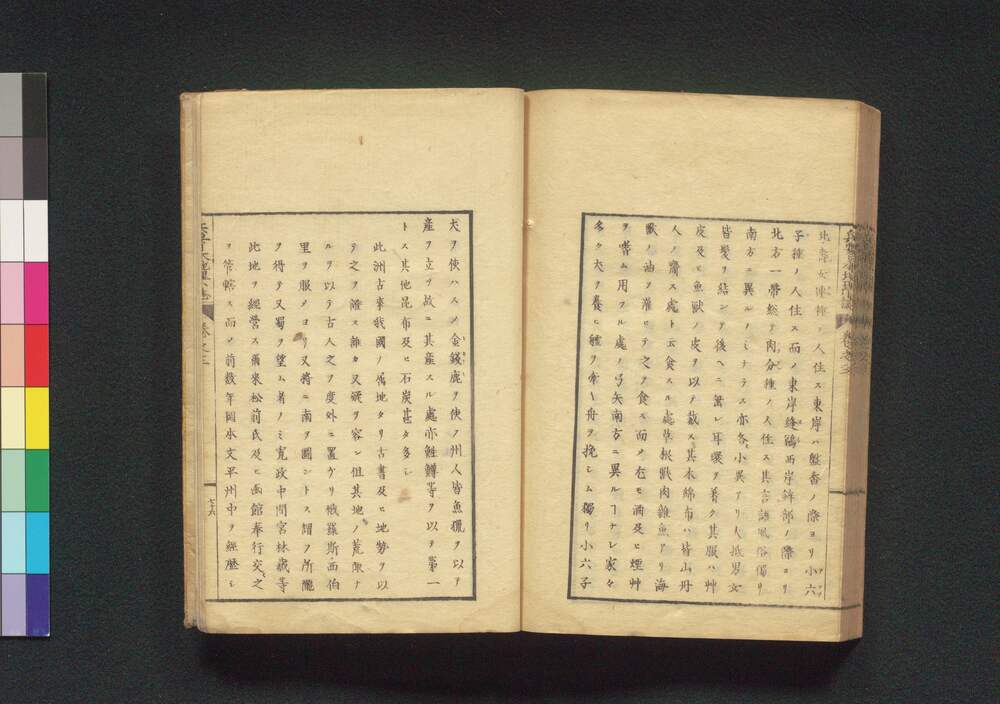 北ハ女連種ノ人住ス東岸ハ盤香ノ際ヨリ小六
子種ノ人住ス而ノ東岸縫鵐西岸鉾部ノ際ヨリ
北方一帶総テ肉分種ノ人住ス其言語風俗獨リ
南方ニ異ルノミナラス亦各小異アリ人抵男女
皆髪ヲ結ンテ後ヘニ盤シ耳環ヲ著ク其服ハ艸
皮及ヒ魚獸ノ皮ヲ以テ裁ス其木綿布ハ皆山丹
人ノ齎ス處ト云食スル處草根獸肉雑魚アリ海
獸ノ油ヲ灌ヒテ之ヲ食ス而メ左モ酒及ヒ煙艸
ヲ嗜ム用フル處ノ弓矢南方ニ異ルコナシ家々
多ク犬ヲ養ヒ軆ヲ牽ヘ舟ヲ挽シム獨リ小六子
犬ヲ使ハスメ金錢鹿ヲ使フ州人皆魚獵ヲ以テ
産ヲ立ツ故ニ其産スル處亦鮭鱒等ヲ以テ第一
トス其他昆布及ヒ石炭甚タ多シ
此洲古來我國ノ属地タリ古書及ヒ地勢ヲ以
テ之ヲ證ス舘カ又疑ヲ容ン但其地ノ荒陬ナ
ルヲ以テ古人之ヲ度外ニ置ケリ俄羅斯西伯
里ヲ服メヨリ又將ニ南ヲ圖ントス謂フ所隴
ヲ得テ又蜀ヲ望ム者ノミ寛政中間宮林蔵等
此地ヲ經營ス爾來松前氏及ヒ函館奉行交之
ヲ管轄ス而メ前数年岡本文平州中ヲ經歴シ
卷之三
七十六